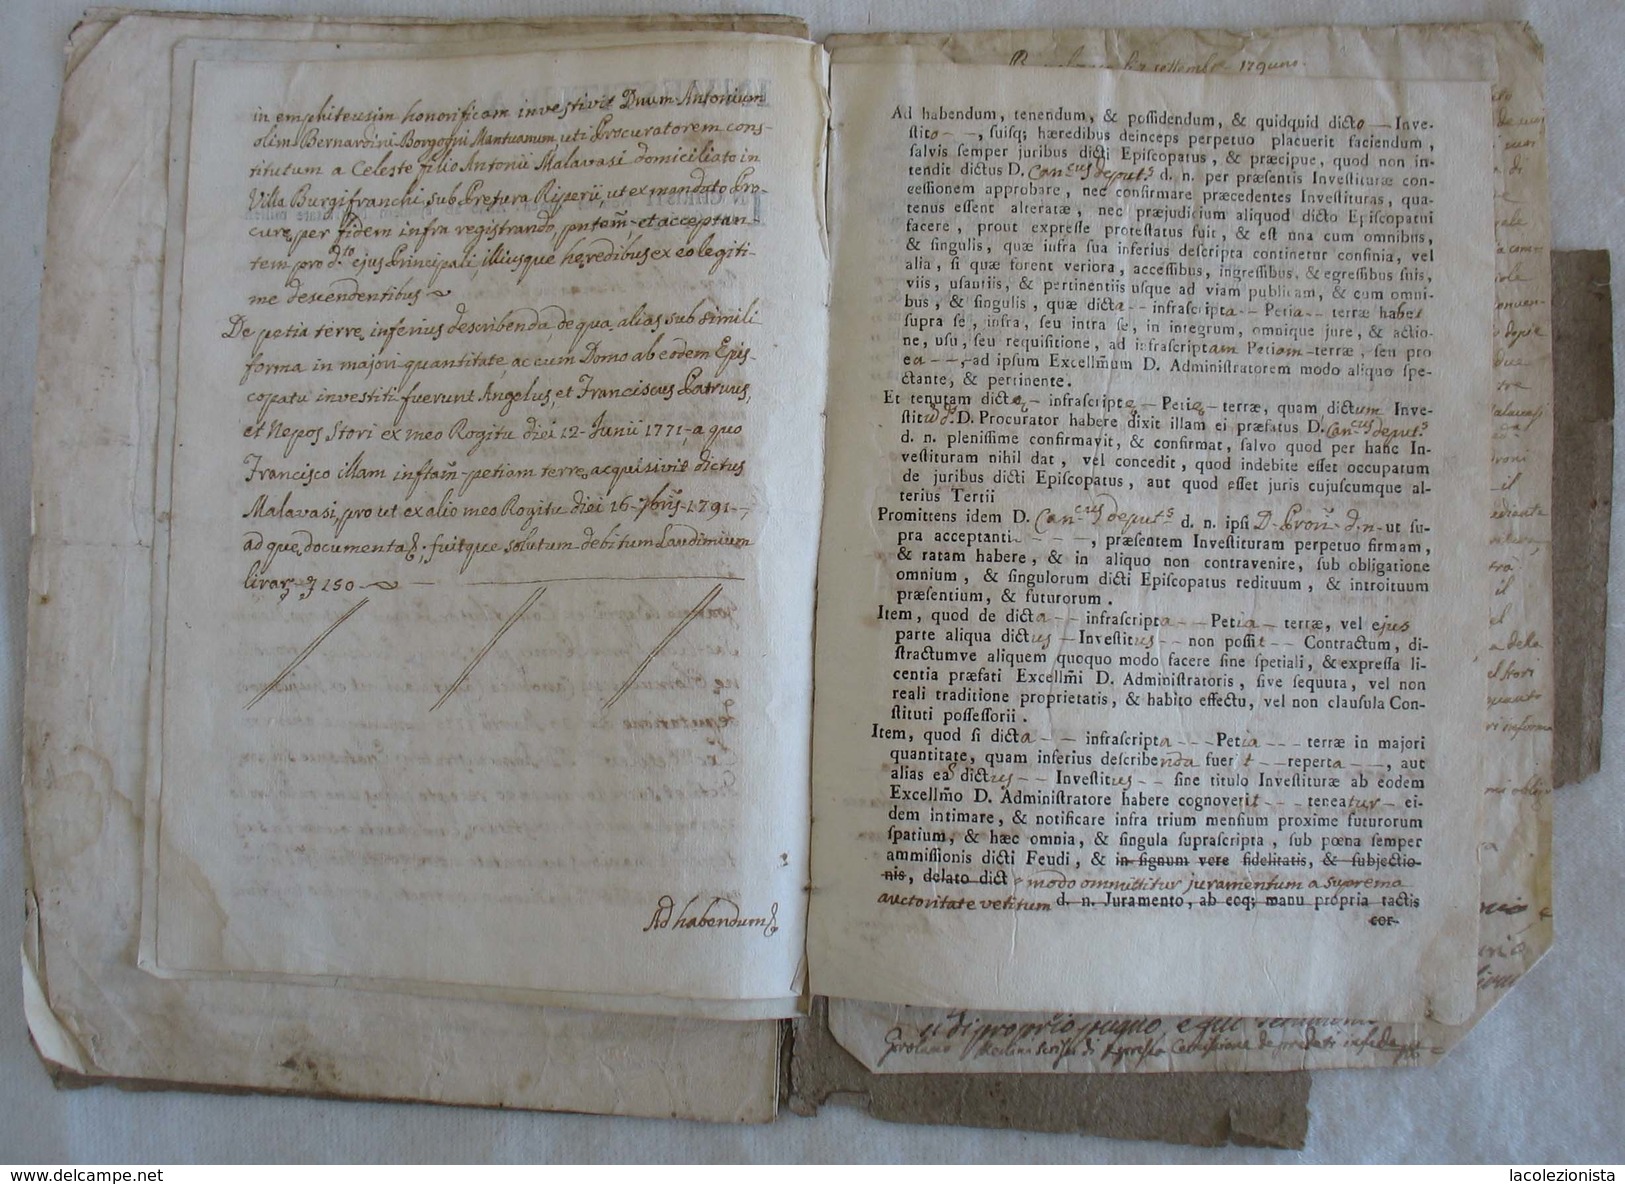 in emphiteusim honorificam investivit Dnum Antonium
olim Bernardini Borgogni Mantuanum, uti Procuratorem cons-
titutum a Celeste filio Antonii Malavasi domiciliato in
Villa Burgifranchi, sub Pretura Riperii, ut ex mandato Pro-
cure, per fidem infra registrando, pntem, et acceptan-
tem pro dto ejus Principali, illiusque heredibus ex eo legiti-
me descendentibus
De petia terre, inferius describenda, de qua, alias sub simili
forma in majori quantitate, ac cum Domo ab eodem Epis-
copatu investiti fuerunt Angelus, et Franciscus Patruus,
et Nepos Stori ex meo Rogitu diei 12 Junii 1771, a quo
Francisco illam inftam petiam terre, acquisivit dictus
Malavasi, pro ut ex alio meo Rogitu diei 16 7bris 1791
ad que documenta &, fuitque solutum debitum Laudimium
librar 150
Ad habendum &
settembre 179
Ad habendum, tenendum, & possidendum, & quidquid dicto — Inve-
stito - —, suisq; hæredibus deinceps perpetuo placuerit faciendum,
salvis semper juribus dicti Episcopatus, & præcipue, quod non in-
tendit dictus D. Can:cus deput:s d. n. per præsentis Investituræ con-
cessionem approbare, nec confirmare præcedentes Investituras, qua-
tenus essent alteratæ, nec præjudicium aliquod dicto Episcopatui
facere, prout expresse protestatus fuit, & est una cum omnibus,
& singulis, quæ infra sua inferius descripta continetur confinia, vel
alia, si quæ forent veriora, accessibus, ingressibus, & egressibus suis,
viis, usantiis, & pertinentiis usque ad viam publicam, & cum omni-
bus, & singulis, quæ dicta - - infrascripta — Petia — terræ habet
supra se, infra, seu intra se, in integrum, omnique jure, & actio-
ne, usu, seu requisitione, ad infrascriptam Petiam - terræ, seu pro
ea - —, ad ipsum Excellmum D. Administratorem modo aliquo spe-
ctante, & pertinente.
Et tenutam dictę - infrascriptę — Petię — terræ, quam dictum Inve-
stitu d.s D. Procurator habere dixit illam ei præfatus D. Can:cus deput:s
d. n. plenissime confirmavit, & confirmat, salvo quod per hanc In-
vestituram nihil dat, vel concedit, quod indebite esset occupatum
de juribus dicti Episcopatus, aut quod esset juris cujuscumque al-
terius Tertii
Promittens idem D. Can:cus deput:s d. n. ipsi D. Pron: d. n. ut su-
pra acceptanti - - - —, præsentem Investituram perpetuo firmam,
& ratam habere, & in aliquo non contravenire, sub obligatione
omnium, & singulorum dicti Episcopatus redituum, & introituum
præsentium, & futurorum.
Item, quod de dicta - - infrascripta — Petia — terræ, vel ejus
parte aliqua dictus — Investitus - - non possit - — Contractum, di-
stractumve aliquem quoquo modo facere sine spetiali, & expressa li-
centia præfati Excellmi D. Administratoris, sive sequuta, vel non
reali traditione proprietatis, & habito effectu, vel non clausula Con-
stituti possessorii.
Item, quod si dicta - — infrascripta - - - Petia - - - terræ in majori
quantitate, quam inferius describenda fuerit — reperta - - —, aut
alias eas dictus - — Investitus - — sine titulo Investituræ ab eodem
Excellmo D. Administratore habere cognoverit - - - teneatur — ei-
dem intimare, & notificare infra trium mensium proxime futurorum
spatium, & hæc omnia, & singula suprascripta, sub pœna semper
ammissionis dicti Feudi, & in signum vere fidelitatis, & subjectio-
nis, delato dict modo ommittitur juramentum a suprema
auctoritate vetitum d. n. Juramento, ab eoq; manu propria tactis
cor-
di proprio pugno, e
lacolezionista